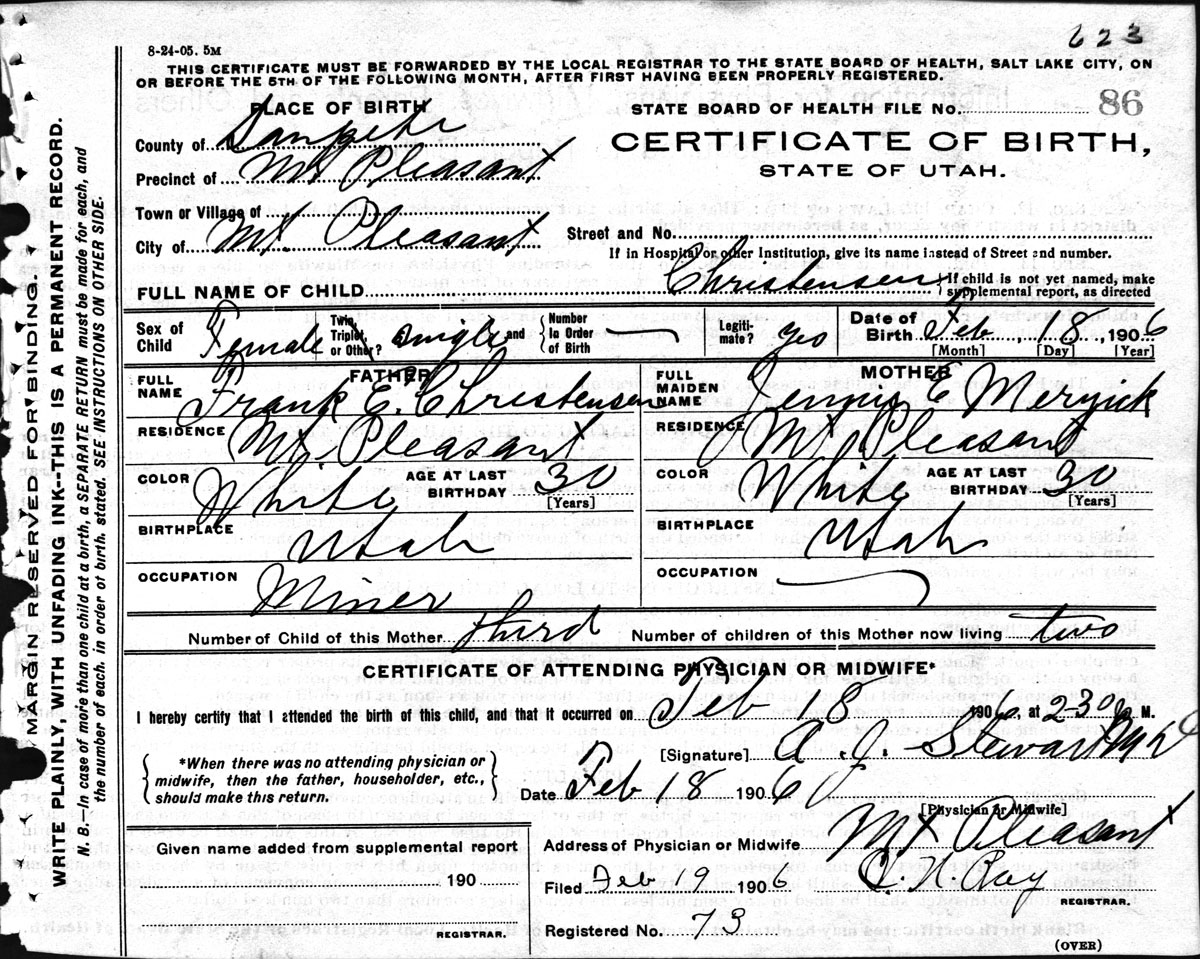 623
8-24-05. 5M
THIS CERTIFICATE MUST BE FORWARDED BY THE LOCAL REGISTRAR TO THE STATE BOARD OF HEALTH, SALT LAKE CITY, ON
OR BEFORE THE 5TH OF THE FOLLOWING MONTH, AFTER FIRST HAVING BEEN PROPERLY REGISTERED.
PLACE OF BIRTH
STATE BOARD OF HEALTH FILE No. 86
County of Sanpete
CERTIFICATE OF BIRTH,
Precinct of Mt Pleasant
STATE OF UTAH.
Town or Village of
City of Mt. Pleasant
Street and No.
If in Hospital or other Institution, give its name instead of Street and number.
FULL NAME OF CHILD Christensen } If child is not yet named, make supplemental report, as directed
Sex of Child Female Twin, Triplet, or Other? Single and { Number in Order of Birth — Legitimate? yes Date of Birth Feb, 18, 1906
[Month] [Day] [Year]
FATHER
MOTHER
FULL NAME Frank E. Christensen
FULL MAIDEN NAME Jennie E Meryick
RESIDENCE Mt. Pleasant
RESIDENCE Mt. Pleasant
COLOR White AGE AT LAST BIRTHDAY 30 [Years]
COLOR White AGE AT LAST BIRTHDAY 30 [Years]
BIRTHPLACE Utah
BIRTHPLACE Utah
OCCUPATION Miner
OCCUPATION
Number of Child of this Mother third Number of children of this Mother now living two
CERTIFICATE OF ATTENDING PHYSICIAN OR MIDWIFE*
I hereby certify that I attended the birth of this child, and that it occurred on Feb 18 1906, at 2-30 M.
{ *When there was no attending physician or midwife, then the father, householder, etc., should make this return. }
[Signature] A. J. Stewart
Date Feb 18 1906
[Physician or Midwife]
Given name added from supplemental report
Address of Physician or Midwife Mt Pleasant
190
Filed Feb 19 1906
REGISTRAR.
REGISTRAR.
Registered No. 73
(OVER)
MARGIN RESERVED FOR BINDING.
WRITE PLAINLY, WITH UNFADING INK--THIS IS A PERMANENT RECORD.
N. B.—In case of more than one child at a birth, a SEPARATE RETURN must be made for each, and
the number of each, in order of birth, stated. SEE INSTRUCTIONS ON OTHER SIDE.